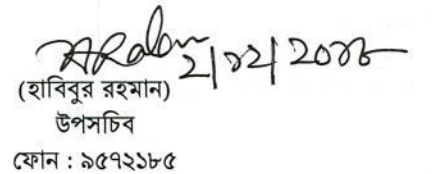 ২/১২/২০১৮
(হাবিবুর রহমান)
উপসচিব
ফোন : ৯৫৭২১৮৫